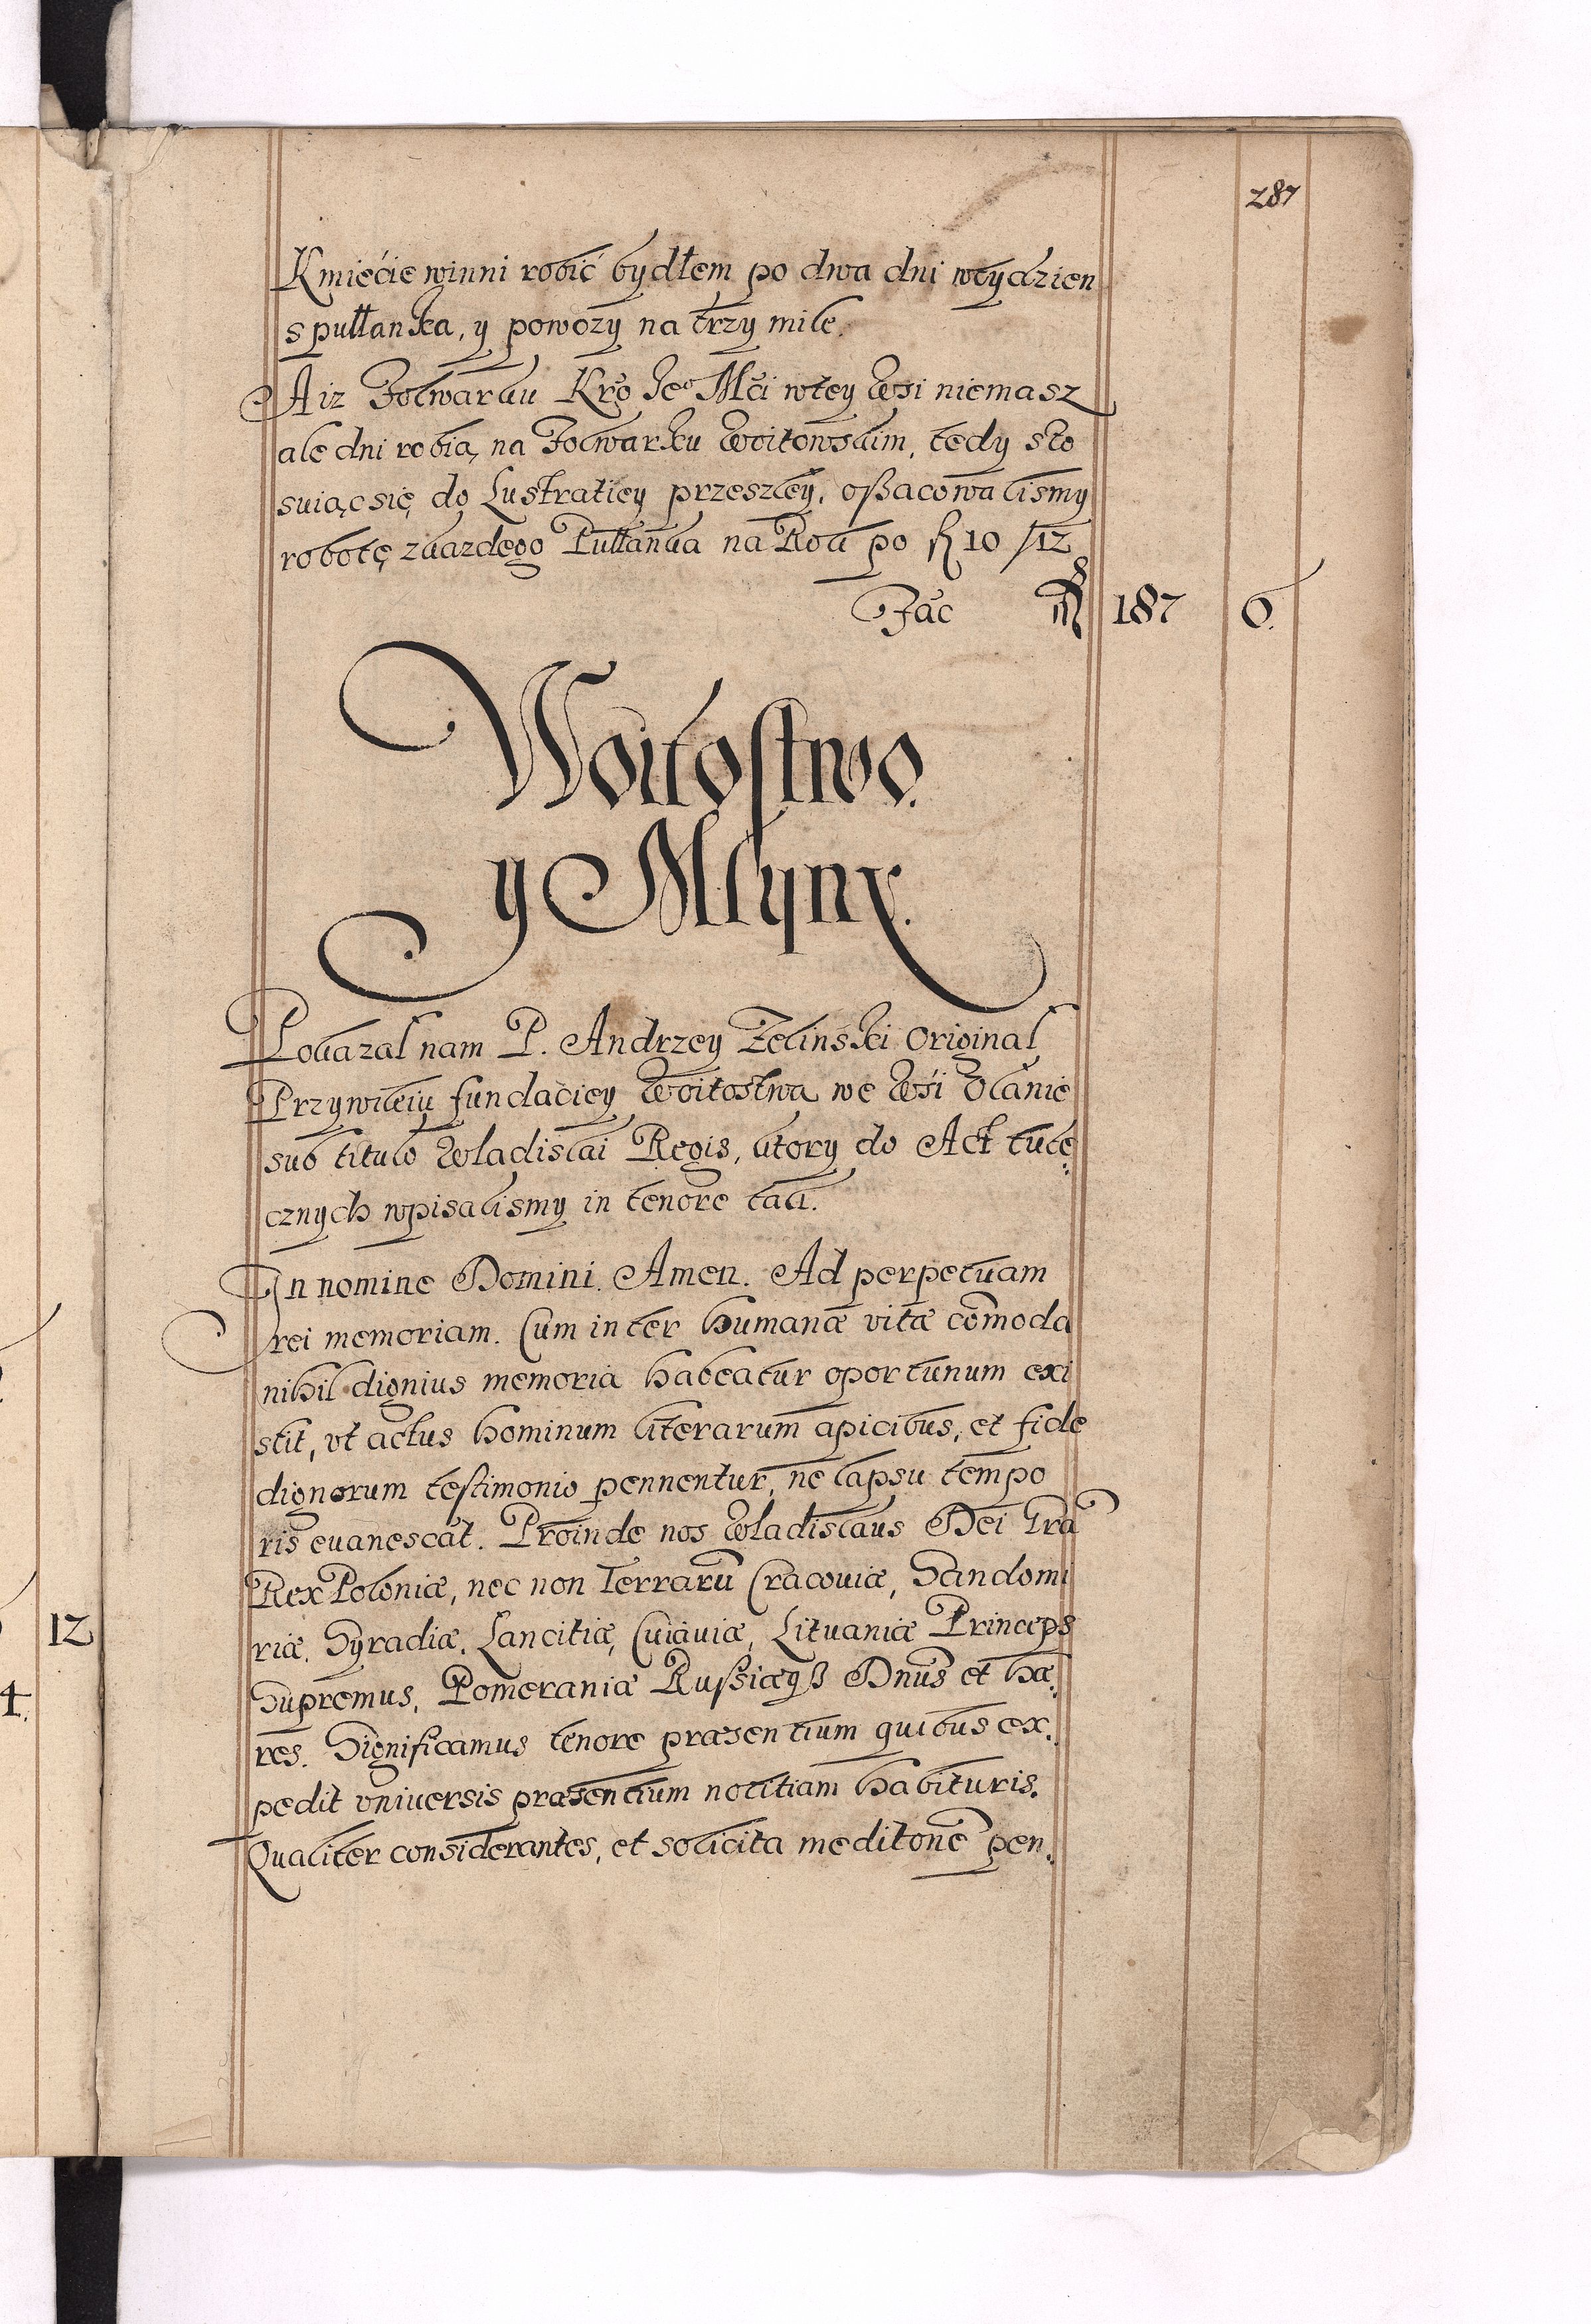 287
Kmiećie winni robić bydłem po dwa dni wtydzien
spułłanka, y powozy na trzy mile.
A iz Folwarku Kro Jeo Mći wtey Wsi niemasz
ale dni robią na Folwarku Woitowskim, tedy sto
suiąc się do Lustratiey przeszłey, oßacowalismy
robotę zkazdego Pułłanka na Rok po fl 10 /12
Fać 187 6.
Woitostwo
y Młyny.
Pokazał nam P. Andrzey Zelinski Original
Przywileiu fundaciey Woitostwa we Wsi Ulanie
sub titulo Wladislai Regis, ktory do Act tute
cznych wpisalismy in tenore tali.
In nomine Domini. Amen. Ad perpetuam
rei memoriam. Cum inter humanæ vitæ com̃oda
nihil dignius memoria habeatur oportunum exi
stit, vt actus hominum literarum apicibus, et fide
dignorum testimonio pennentur, ne lapsu tempo
ris euanescat. Proinde nos Wladislaus Dei Gra
Rex Poloniæ, nec non Terrarũ Cracouiæ, Sandomi
riæ, Syradiæ, Lancitiæ, Cuiauiæ, Lituaniæ Princeps
Supremus, Pomeraniæ Rußiæqȝ Dnus et hæ
res. Significamus tenore præsentium quibus ex
pedit vniuersis præsentium notitiam habituris.
Qualiter considerantes, et solicita meditone pen
12
4.